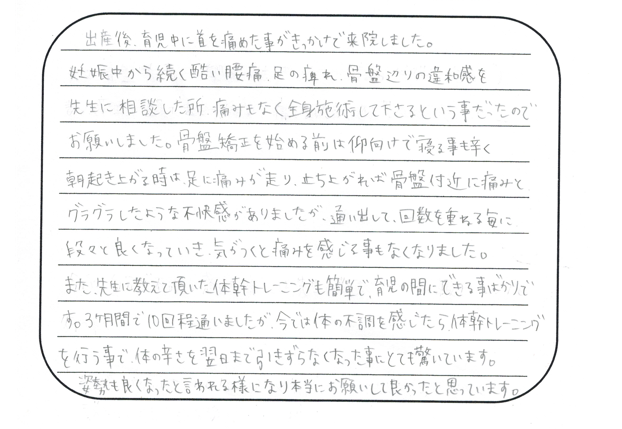 出産後、育児中に首を痛めた事がきっかけで来院しました。
妊娠中から続く酷い腰痛、足の痺れ、骨盤辺りの違和感を
先生に相談した所、痛みもなく全身施術して下さるという事だったので
お願いしました。骨盤矯正を始める前は仰向けで寝る事も辛く
朝起き上がる時は、足に痛みが走り、立ち上がれば骨盤付近に痛みと
グラグラしたような不快感がありましたが、通い出して、回数を重ねる毎に
段々と良くなっていき、気がつくと痛みを感じる事もなくなりました。
また、先生に教えて頂いた体幹トレーニングも簡単で、育児の間にできる事ばかりで
す。3ヶ月間で10回程通いましたが、今では体の不調を感じたら体幹トレーニング
を行う事で、体の辛さを翌日まで引きずらなくなった事にとても驚いています。
姿勢も良くなったと言われる様になり本当にお願いして良かったと思っています。